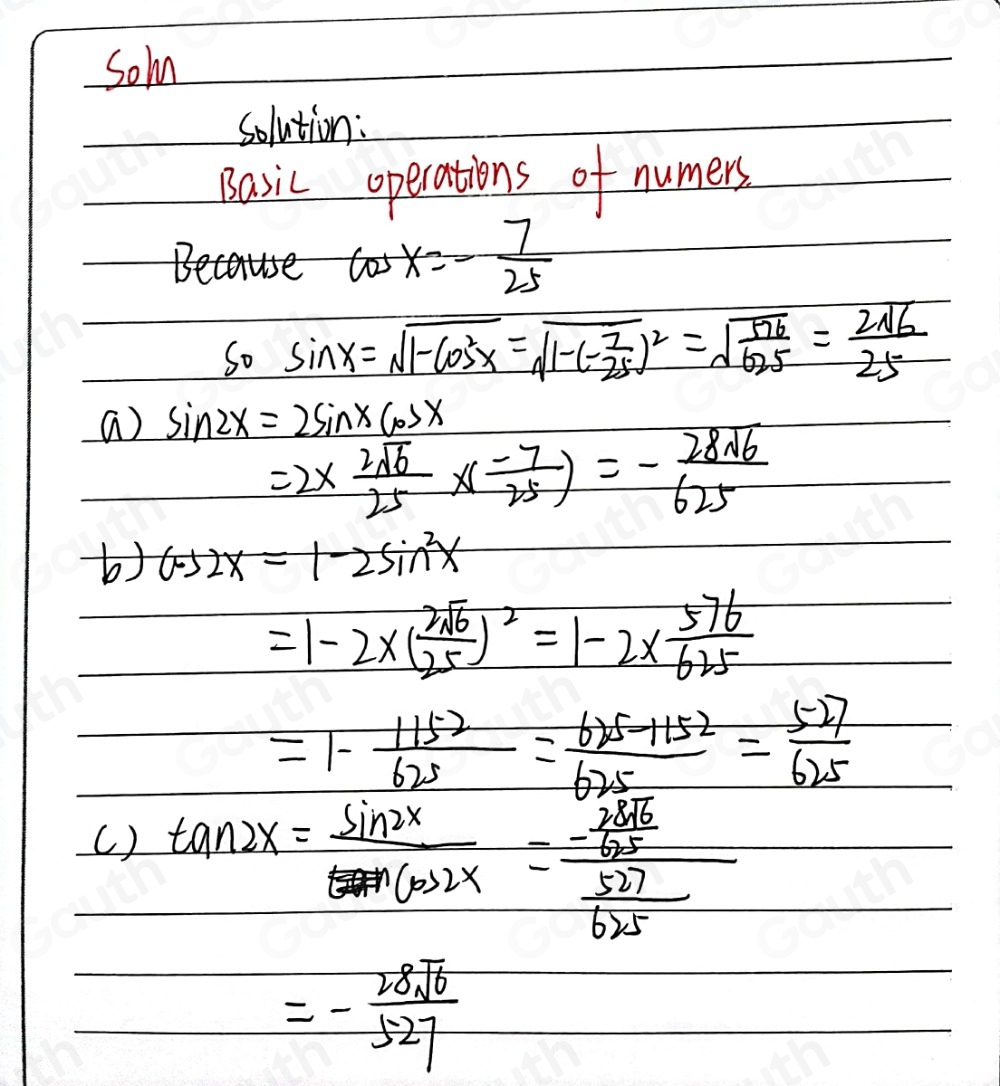 Soln
Solution:
Basic operations of numers
Because cos x = - 7/25
so sin x = √(1-cos²x) = √(1-(-7/25)²) = √(576/625) = 2√6/25
a) sin2x = 2sinx cosx
= 2 × 2√6/25 × (-7/25) = - 28√6/625
b) cos2x = 1-2sin²x
= 1-2×(2√6/25)² = 1-2× 576/625
= 1- 1152/625 = 625-1152/625 = 527/625
c) tan2x = sin2x/cos2x = -28√6/625 / 527/625
= - 28√6/527